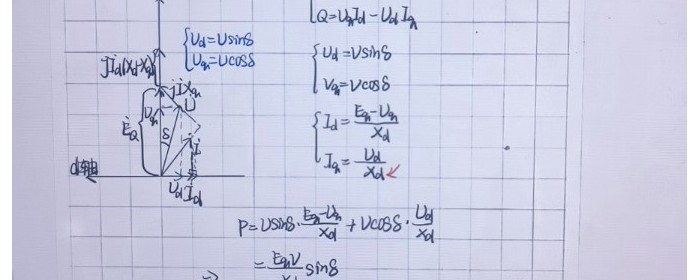 Q=UqId-UdIq
Ud=Usinδ
Uq=Ucosδ
jId(Xd-Xq)
jİXq
U
Uq
ĖQ
δ
İ
d轴
Ud
İd
Ud=Usinδ
Uq=Ucosδ
Id=(Eq-Uq)/Xd
Iq=Ud/Xd
P=Usinδ·(Eq-Uq)/Xd+Ucosδ·Ud/Xd
=EqU/Xd sinδ